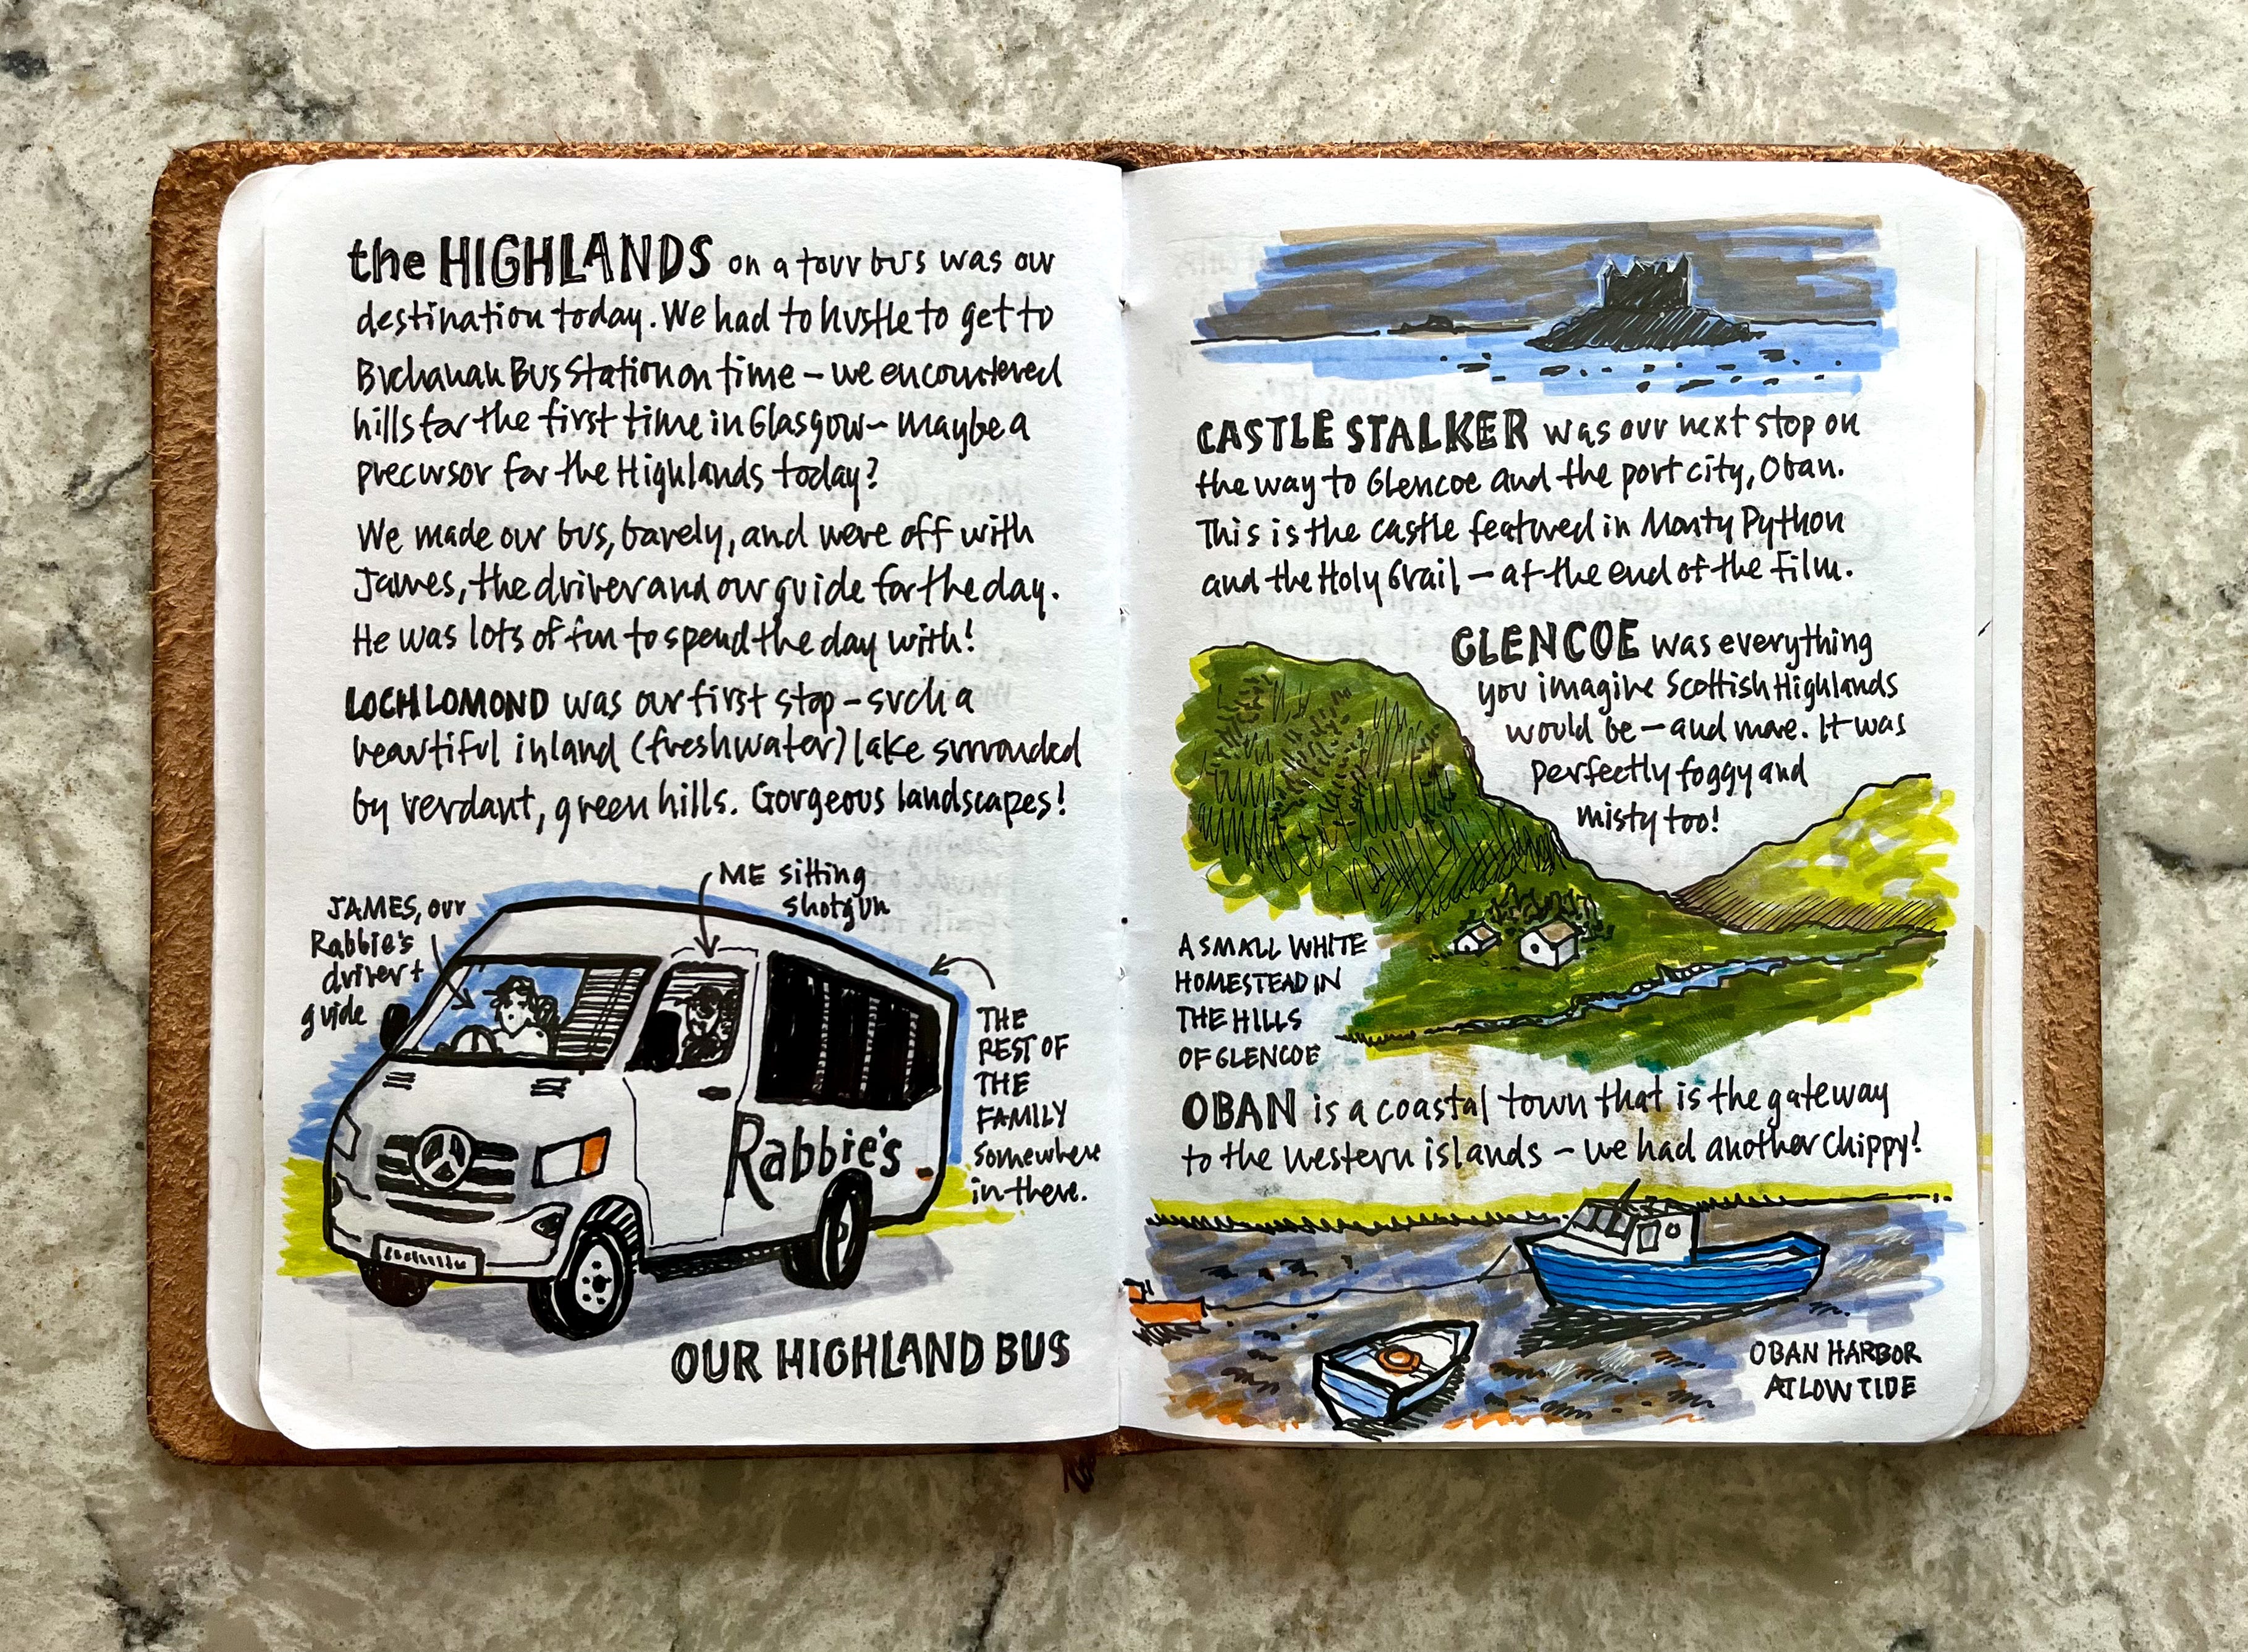 the HIGHLANDS on a tour bus was our
destination today. We had to hustle to get to
Buchanan Bus Station on time – we encountered
hills for the first time in Glasgow – maybe a
precursor for the Highlands today?
We made our bus, barely, and were off with
James, the driver and our guide for the day.
He was lots of fun to spend the day with!
LOCH LOMOND was our first stop – such a
beautiful inland (freshwater) lake surrounded
by verdant, green hills. Gorgeous landscapes!
ME sitting
shotgun
JAMES, our
Rabbie's
driver +
guide
THE
REST OF
THE
FAMILY
somewhere
in there.
Rabbie's
OUR HIGHLAND BUS
CASTLE STALKER was our next stop on
the way to Glencoe and the port city, Oban.
This is the castle featured in Monty Python
and the Holy Grail – at the end of the film.
GLENCOE was everything
you imagine Scottish Highlands
would be – and more. It was
perfectly foggy and
misty too!
A SMALL WHITE
HOMESTEAD IN
THE HILLS
OF GLENCOE
OBAN is a coastal town that is the gateway
to the western islands – we had another chippy!
OBAN HARBOR
AT LOW TIDE